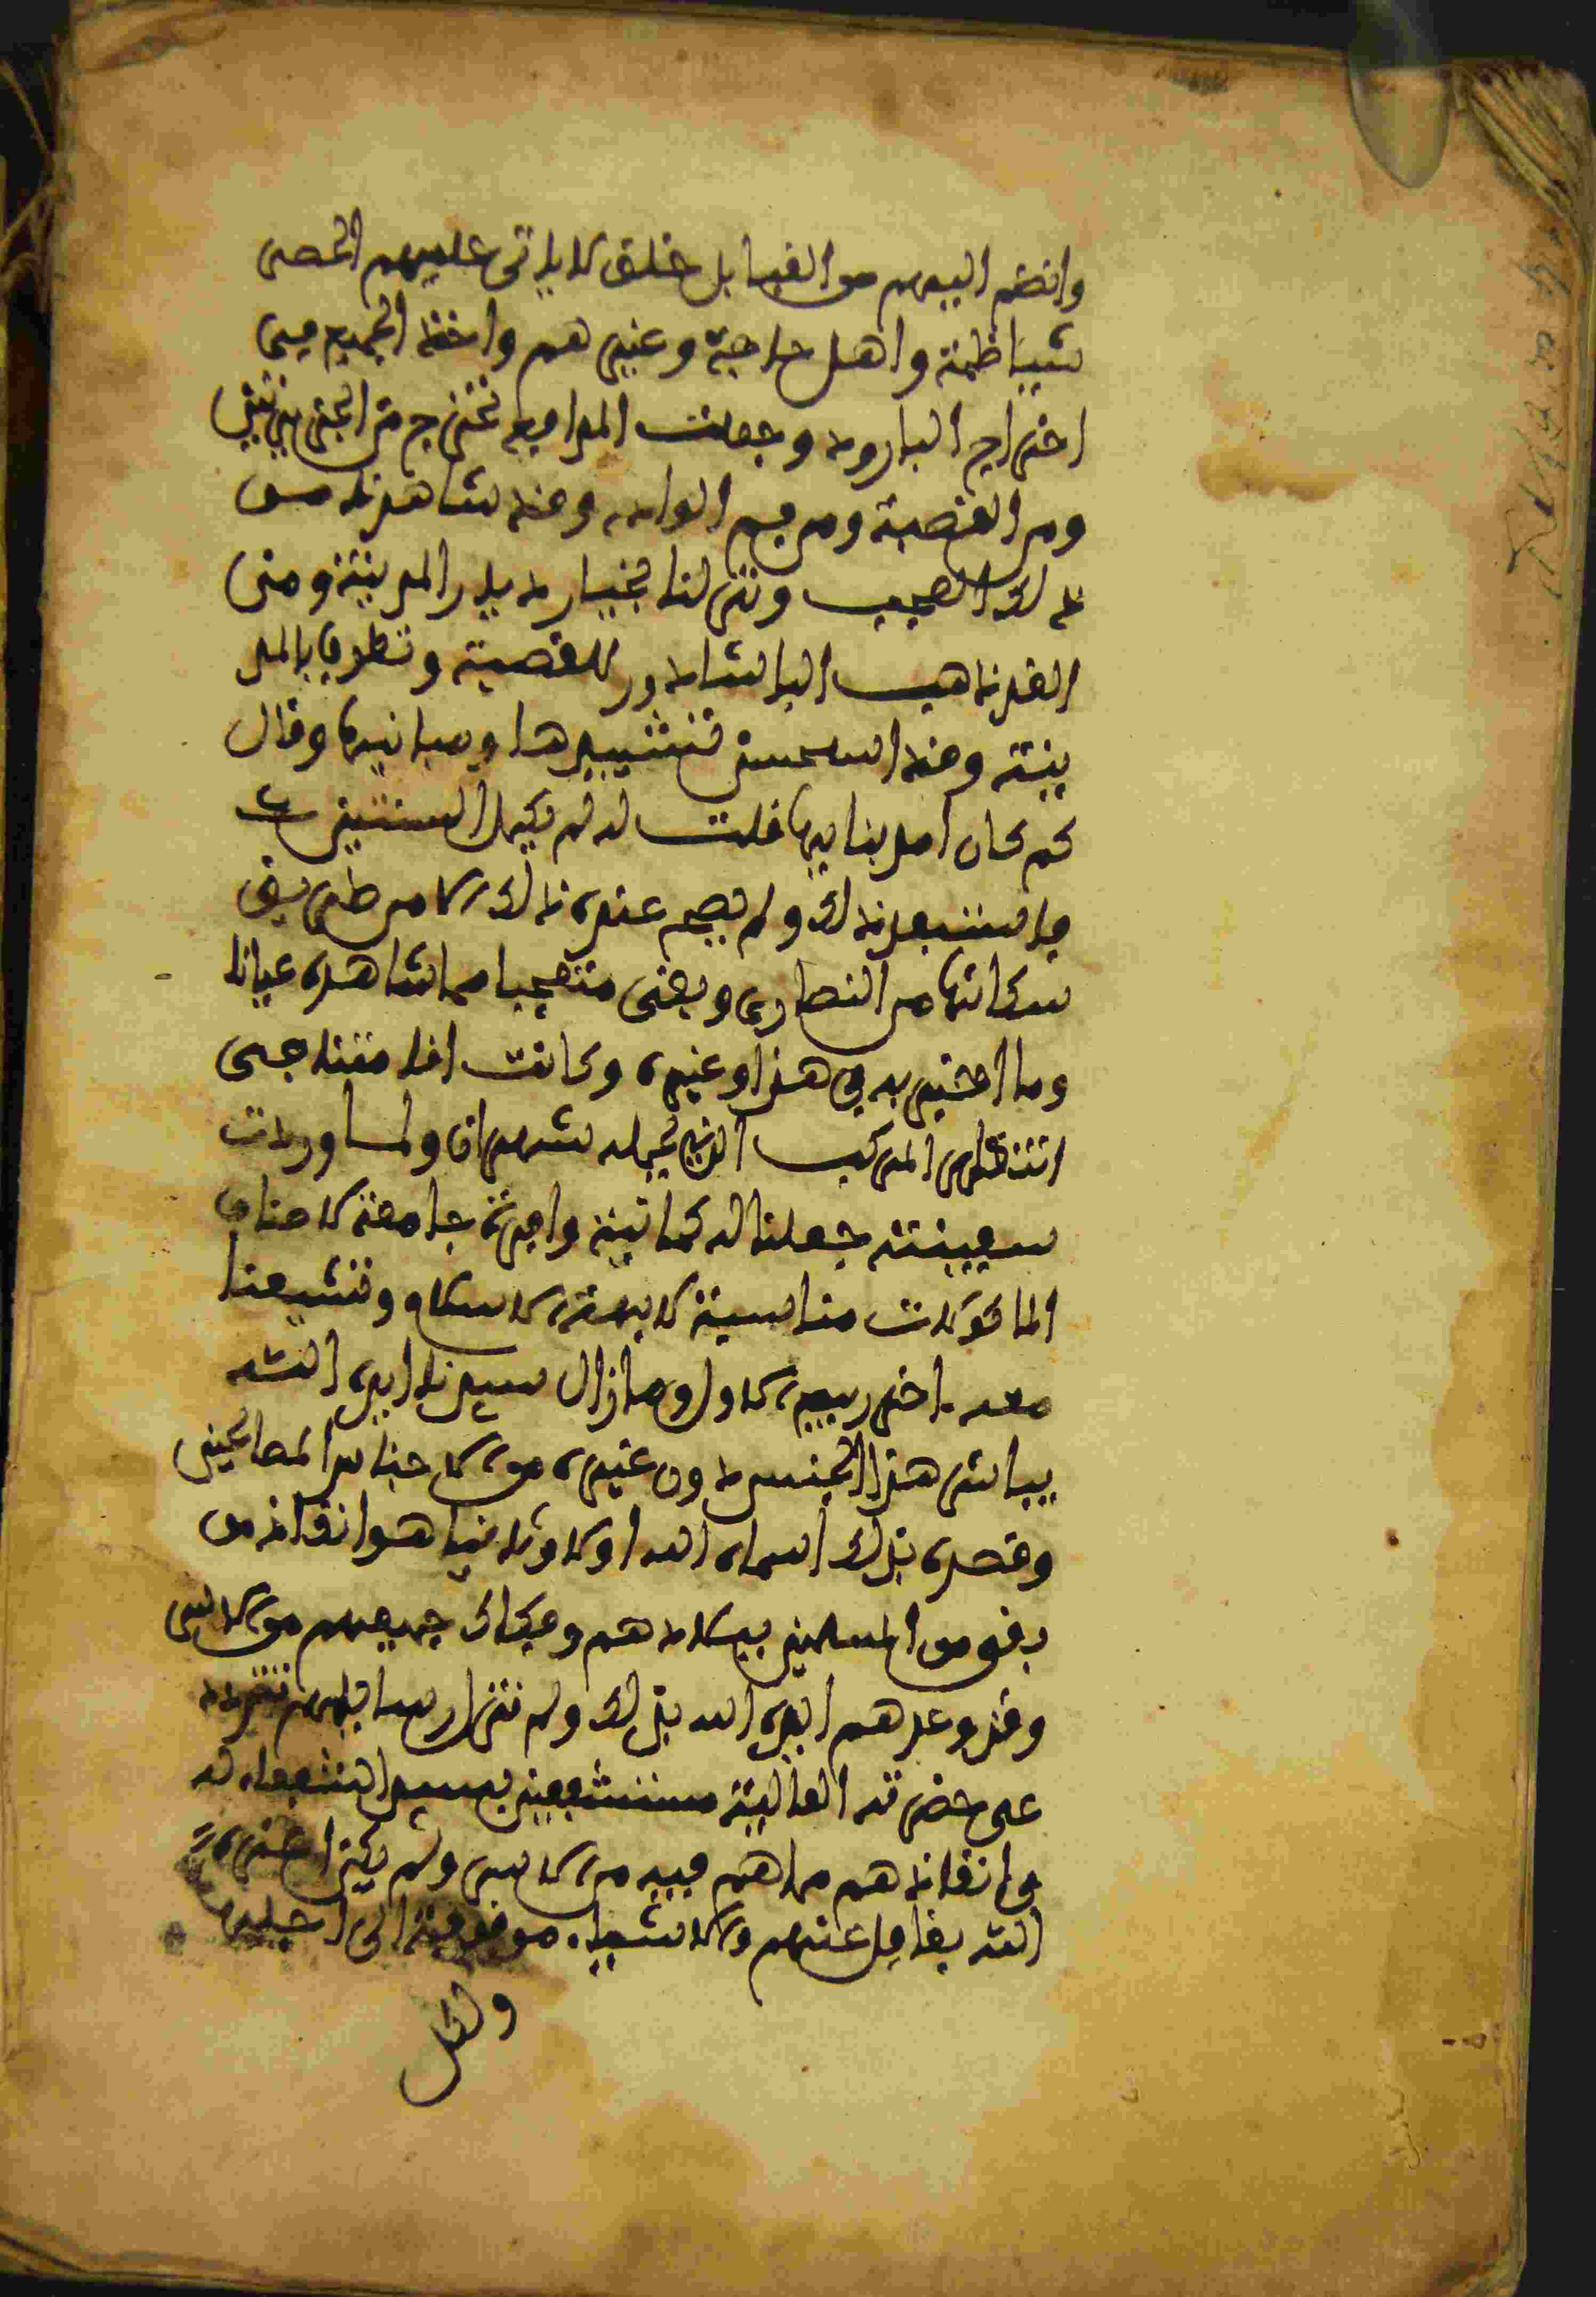 وانضم اليهم من القبايل خلق لا ياتي عليهم الحصى
شياظمة واهل حاحة وغيرهم واخذ الجميع في
اخراج البارود وجعلت المدافع تخرج من الجزيرتين
ومن القصبة ومن فم الواد وقد شاهدنا من
ذلك العجب ونزلنا بخيار ديار المدينة ومن
الغد ذهب الباشادور للقصبة وتطوف بالمد
ينة وقد استحسن تشييدها ومبانيها وقال
كم كان امد بنايها قلت له لم يكمل السنتين
فاستبعد ذلك ولم يصح عنده ذلك الا من طريق
سكانها من النصارى وبقي متعجبا مما شاهده عيانا
وما اخبر به في هذا وغيره وكانت اقامتنا حتى
انتظار المركب الذي يحمله شهران ولما وردت
سفينته جعلنا له كمانية وافرة جامعة لاصناف
الماكولات مناسبة لابهة الاسلام وتشيعنا
معه اخر ربيع الاول وما زال سيدنا ايده الله
يباشر هذا الجنس دون غيره من الاجناس المصالحين
وقصده بذلك اسماه الله اولا وثانيا هو انقاذ من
بقي من المسلمين ببلادهم وفكاك جميعهم من الاسر
وقد وعدهم ايده الله بذلك ولم تزل رسايلهم تتردد
على حضرته العالية مستشفعين بسيد الشفعاء له
في انقاذهم مما هم فيه من الاسر ولم يكن اعزه
الله بغافل عنهم والاشياء موقوفة الى اجلها
ولكل